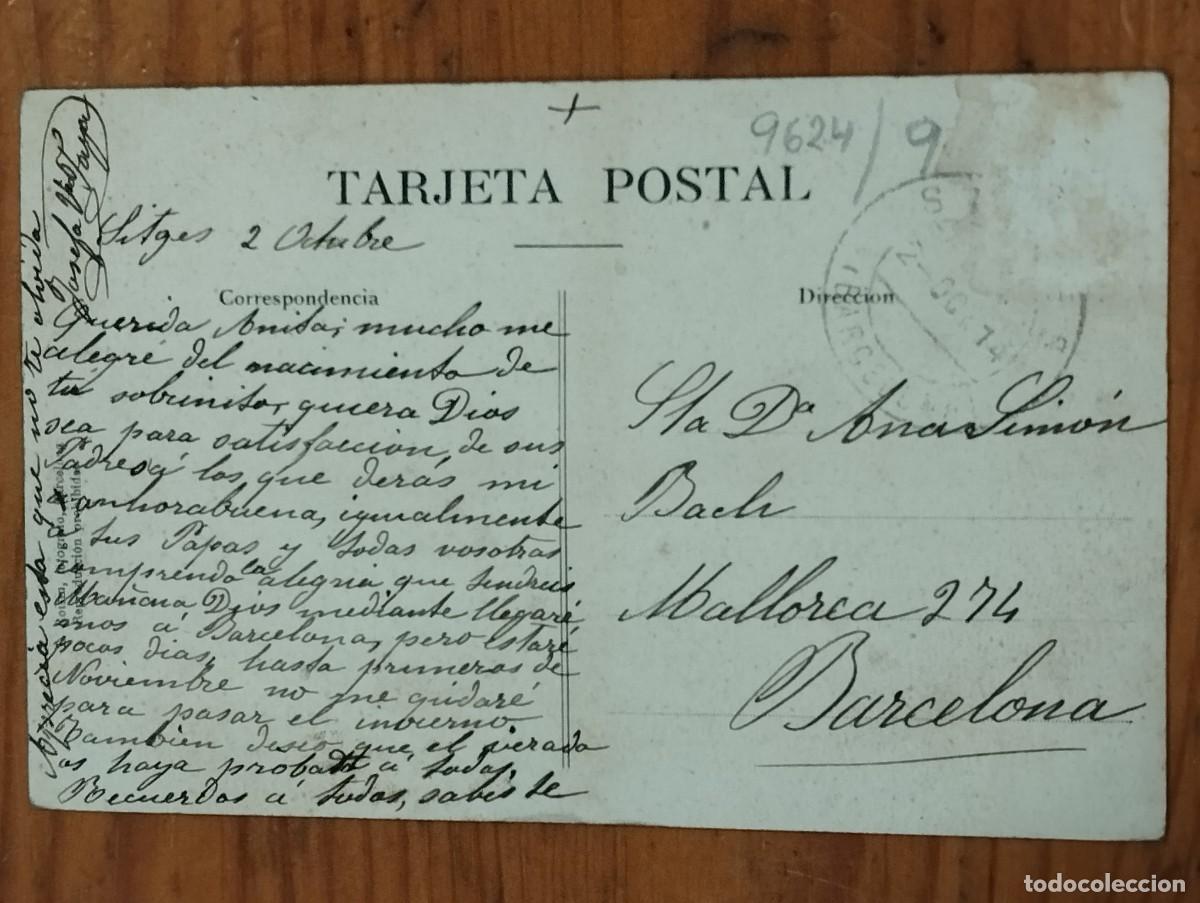 9624/9
TARJETA POSTAL
Sitges 2 Octubre
Correspondencia
Direccion
Querida Anita; mucho me
alegré del nacimiento de
tu sobrinito, quiera Dios
sea para satisfacción, de sus
Padres á los que derás mi
enhorabuena, igualmente
tus Papas y todas vosotras
comprendo la alegria que tendreis
Mañana Dios mediante llegaré
mos á Barcelona, pero estaré
pocos dias, hasta primeros de
Noviembre no me qudaré
para pasar el invierno
Tambien deseo que el verada
os haya probado á todas,
Recuerdos á todos, sabes te
aprecia esta que no te olvida
Josefa
Sta Dª Ana Simón
Bach
Mallorca 274
Barcelona
2 OCT 14
BARCEL
Reproducción prohibida
todocoleccion